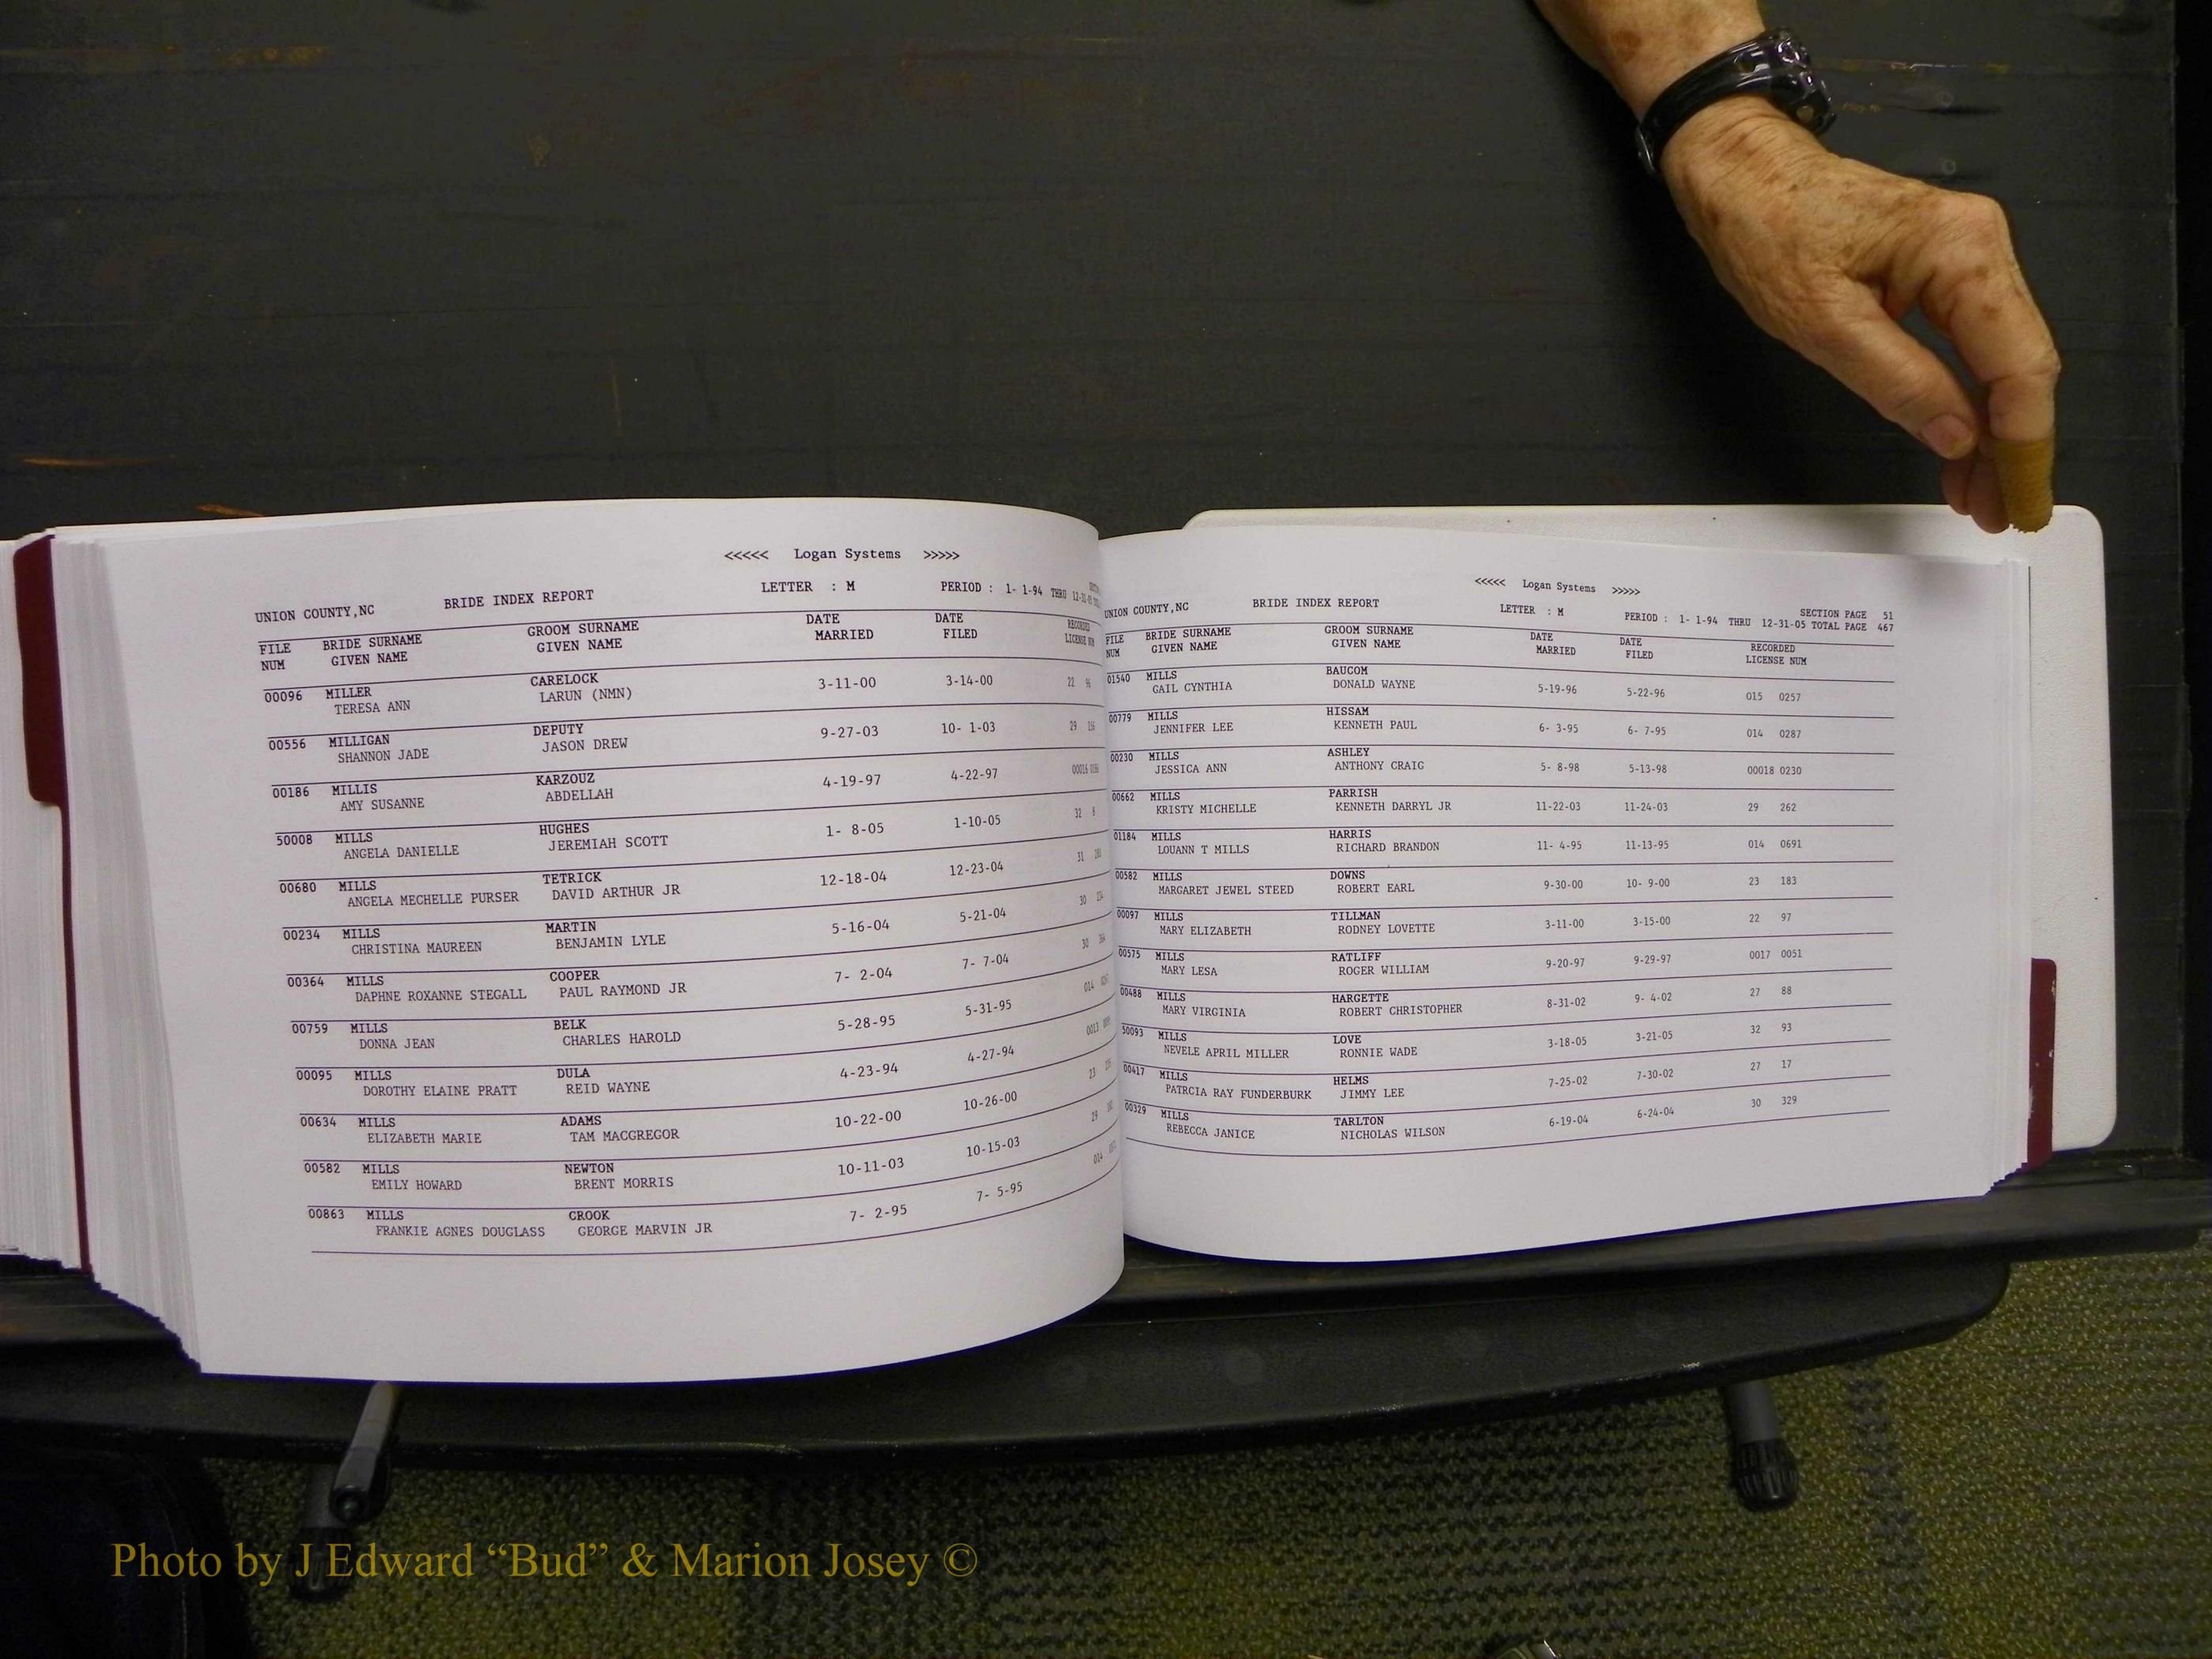 <<<<< Logan Systems >>>>>
UNION COUNTY,NC BRIDE INDEX REPORT LETTER : M PERIOD : 1- 1-94 THRU
FILE BRIDE SURNAME GROOM SURNAME DATE DATE RECORDED
NUM GIVEN NAME GIVEN NAME MARRIED FILED LICENSE NUM
00096 MILLER CARELOCK 3-11-00 3-14-00 22
TERESA ANN LARUN (NMN)
00556 MILLIGAN DEPUTY 9-27-03 10- 1-03 29
SHANNON JADE JASON DREW
00186 MILLIS KARZOUZ 4-19-97 4-22-97 00016
AMY SUSANNE ABDELLAH
50008 MILLS HUGHES 1- 8-05 1-10-05 32
ANGELA DANIELLE JEREMIAH SCOTT
00680 MILLS TETRICK 12-18-04 12-23-04 31
ANGELA MECHELLE PURSER DAVID ARTHUR JR
00234 MILLS MARTIN 5-16-04 5-21-04 30
CHRISTINA MAUREEN BENJAMIN LYLE
00364 MILLS COOPER 7- 2-04 7- 7-04 30
DAPHNE ROXANNE STEGALL PAUL RAYMOND JR
00759 MILLS BELK 5-28-95 5-31-95 014
DONNA JEAN CHARLES HAROLD
00095 MILLS DULA 4-23-94 4-27-94 0013
DOROTHY ELAINE PRATT REID WAYNE
00634 MILLS ADAMS 10-22-00 10-26-00 23
ELIZABETH MARIE TAM MACGREGOR
00582 MILLS NEWTON 10-11-03 10-15-03 29
EMILY HOWARD BRENT MORRIS
00863 MILLS CROOK 7- 2-95 7- 5-95 014
FRANKIE AGNES DOUGLASS GEORGE MARVIN JR
<<<<< Logan Systems >>>>>
UNION COUNTY,NC BRIDE INDEX REPORT LETTER : M SECTION PAGE 51
PERIOD : 1- 1-94 THRU 12-31-05 TOTAL PAGE 467
FILE BRIDE SURNAME GROOM SURNAME DATE DATE RECORDED
NUM GIVEN NAME GIVEN NAME MARRIED FILED LICENSE NUM
01540 MILLS BAUCOM 5-19-96 5-22-96 015 0257
GAIL CYNTHIA DONALD WAYNE
00779 MILLS HISSAM 6- 3-95 6- 7-95 014 0287
JENNIFER LEE KENNETH PAUL
00230 MILLS ASHLEY 5- 8-98 5-13-98 00018 0230
JESSICA ANN ANTHONY CRAIG
00662 MILLS PARRISH 11-22-03 11-24-03 29 262
KRISTY MICHELLE KENNETH DARRYL JR
01184 MILLS HARRIS 11- 4-95 11-13-95 014 0691
LOUANN T MILLS RICHARD BRANDON
00582 MILLS DOWNS 9-30-00 10- 9-00 23 183
MARGARET JEWEL STEED ROBERT EARL
00097 MILLS TILLMAN 3-11-00 3-15-00 22 97
MARY ELIZABETH RODNEY LOVETTE
00575 MILLS RATLIFF 9-20-97 9-29-97 0017 0051
MARY LESA ROGER WILLIAM
00488 MILLS HARGETTE 8-31-02 9- 4-02 27 88
MARY VIRGINIA ROBERT CHRISTOPHER
50093 MILLS LOVE 3-18-05 3-21-05 32 93
NEVELE APRIL MILLER RONNIE WADE
00417 MILLS HELMS 7-25-02 7-30-02 27 17
PATRCIA RAY FUNDERBURK JIMMY LEE
00329 MILLS TARLTON 6-19-04 6-24-04 30 329
REBECCA JANICE NICHOLAS WILSON
Photo by J Edward “Bud” & Marion Josey ©